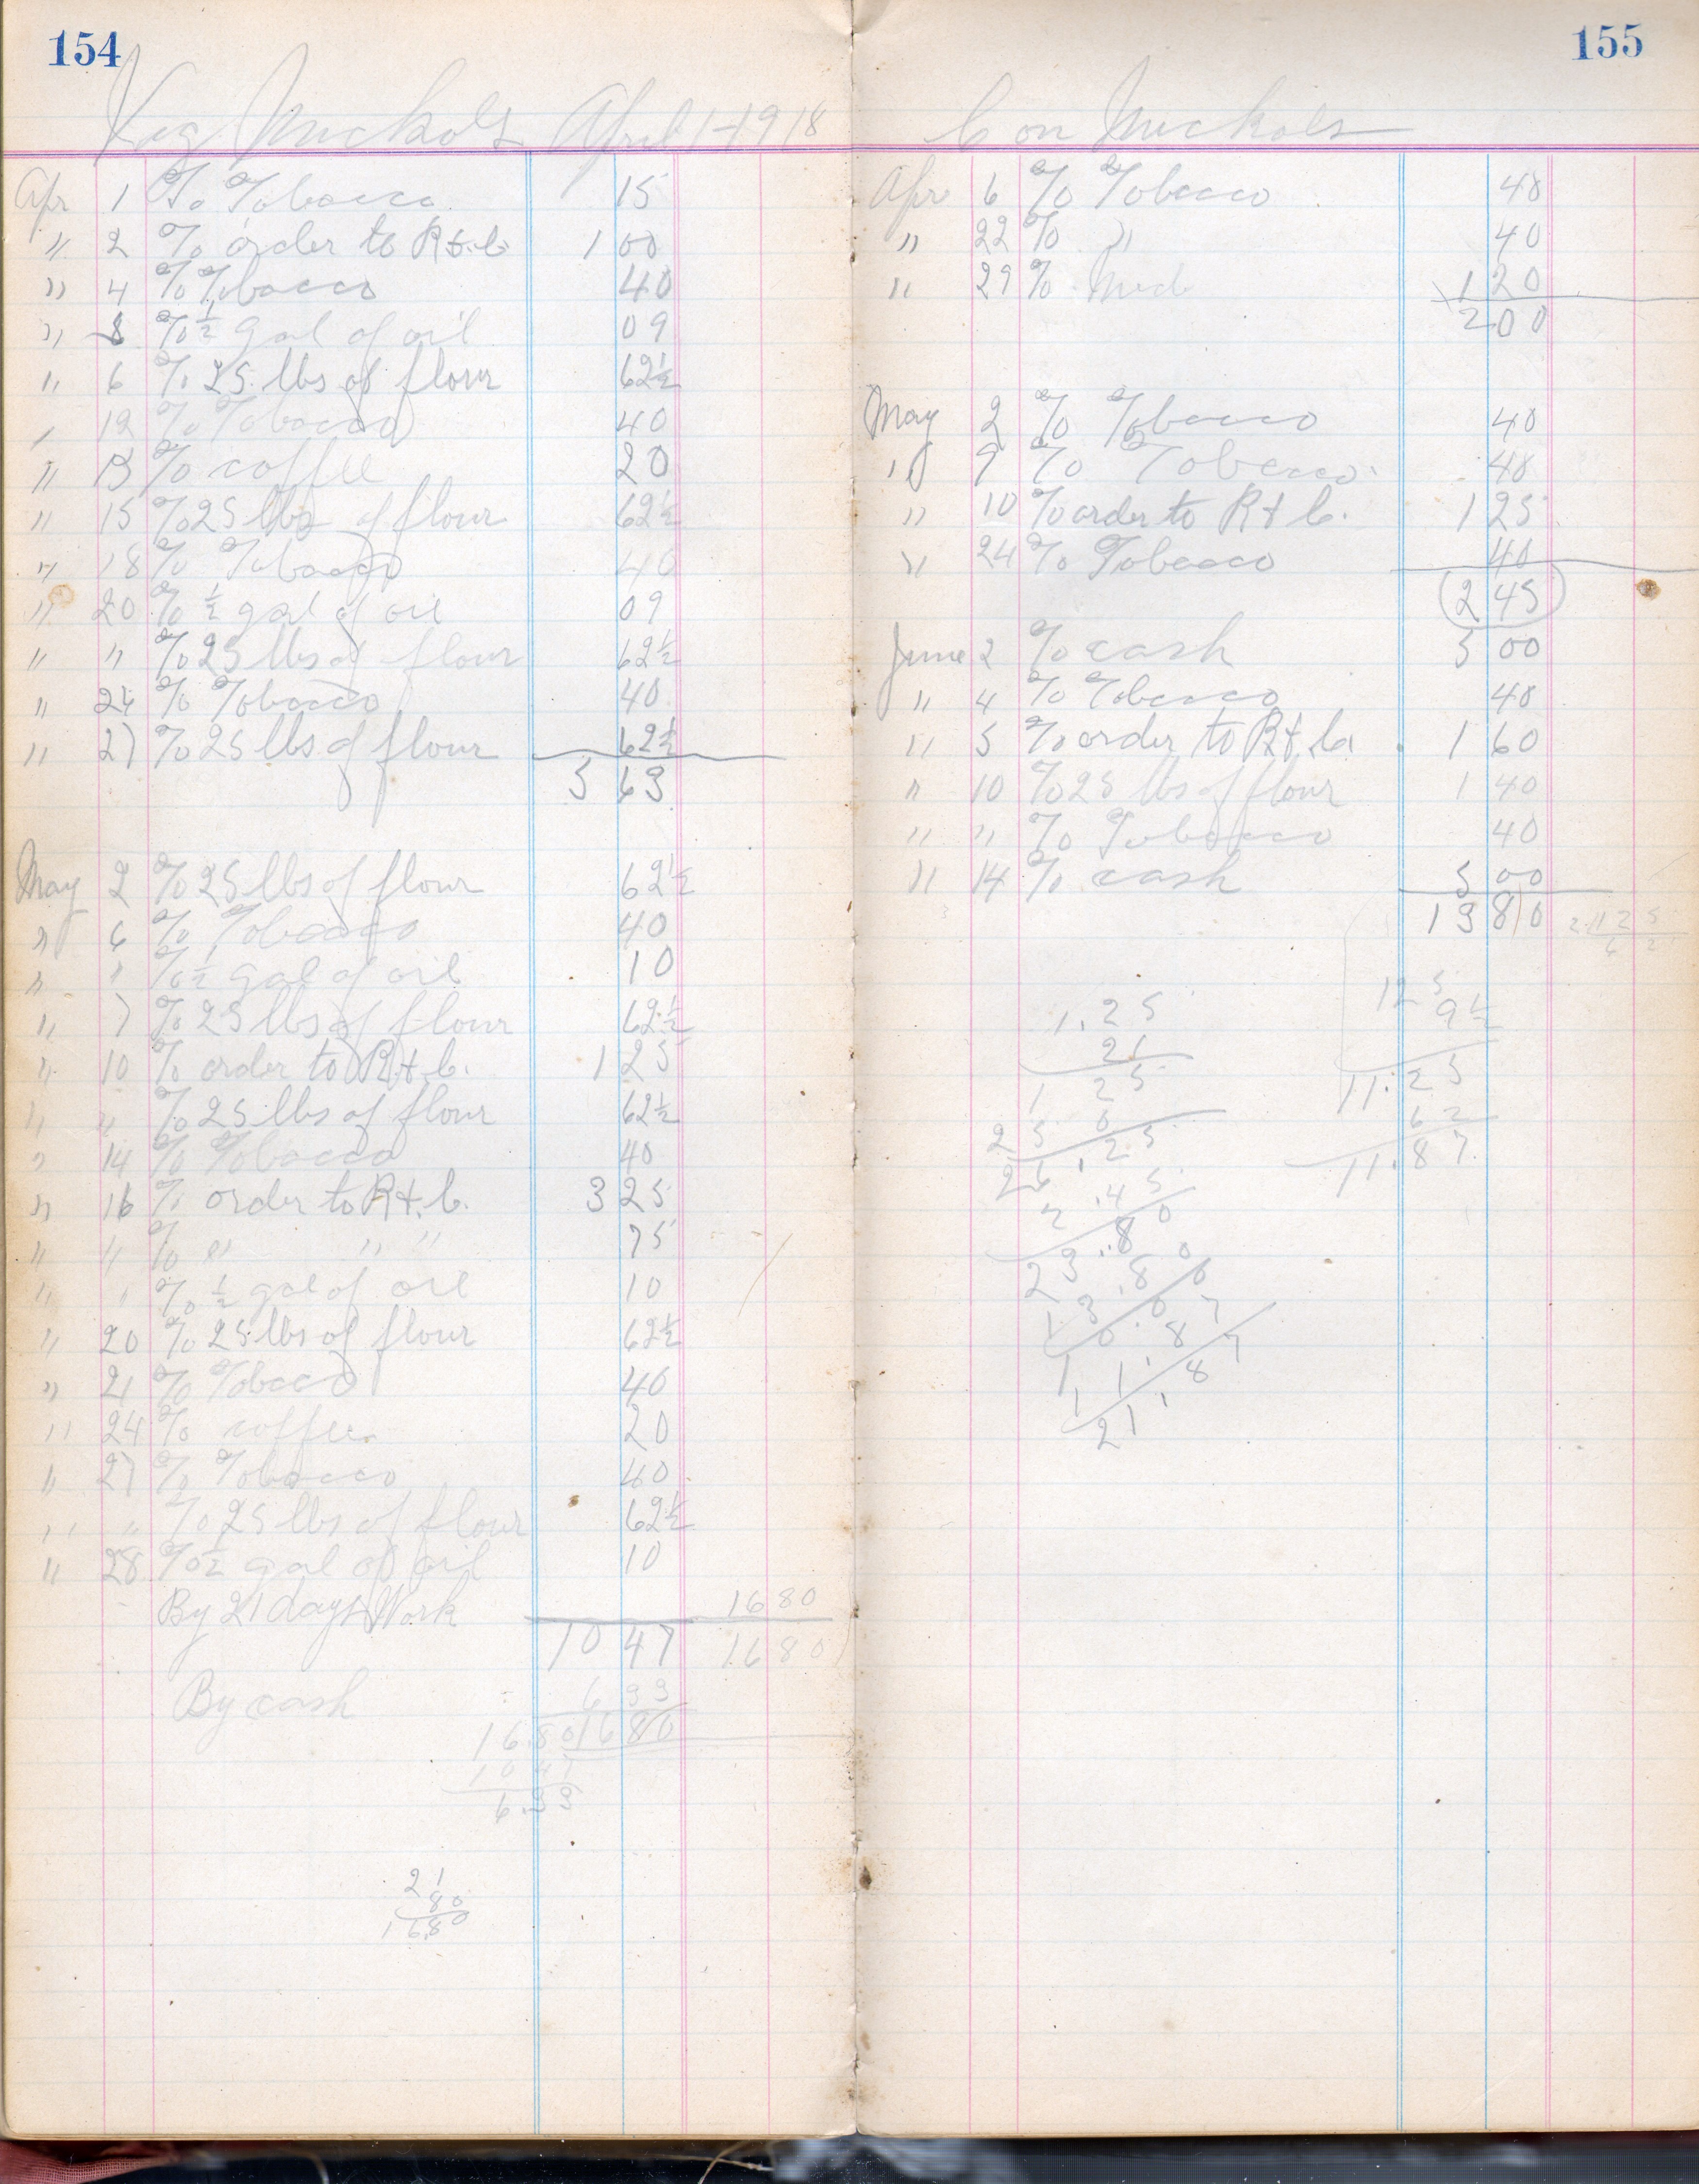 154
Nuckols April 1-1918
Apr 1 To Tobacco 15
" 2 To order to R & C 1 00
" 4 To Tobacco 40
" 8 To 1/2 gal of oil 09
" 6 To 25 lbs of flour 62 1/2
" 12 To Tobacco 40
" 13 To coffee 20
" 15 To 25 lbs of flour 62 1/2
" 18 To Tobacco 40
" 20 To 1/2 gal of oil 09
" " To 25 lbs of flour 62 1/2
" 24 To Tobacco 40
" 27 To 25 lbs of flour 62 1/2
5 63
May 2 To 25 lbs of flour 62 1/2
" 6 To Tobacco 40
" " To 1/2 gal of oil 10
" 7 To 25 lbs of flour 62 1/2
" 10 To order to R & C. 1 25
" " To 25 lbs of flour 62 1/2
" 14 To Tobacco 40
" 16 To order to R & C. 3 25
" " To " " " 75
" " To 1/2 gal of oil 10
" 20 To 25 lbs of flour 62 1/2
" 21 To Tobacco 40
" 24 To coffee 20
" 27 To Tobacco 40
" " To 25 lbs of flour 62 1/2
" 28 To 1/2 gal of oil 10
By 21 days Work 16 80
10 47 16 80
By cash 6 33
16.80 16 80
10 47
6.33
21
80
16.80
155
Con Nuckols
Apr 6 To Tobacco 40
" 22 To " 40
" 29 To Mdc 1 20
2 00
May 2 To Tobacco 40
" 9 To Tobacco 40
" 10 To order to R & C. 1 25
" 24 To Tobacco 40
2 45
June 2 To cash 5 00
" 4 To Tobacco 40
" 5 To order to R & Co 1 60
" 10 To 25 lbs of flour 1 40
" " To Tobacco 40
" 14 To cash 5 00
13 80
2 125
62
1.25
21
1 25
25 0
26.25
2.45
23.80
13.80
10.00
11.87
21.87
125
9 1/2
11.25
62
11.87